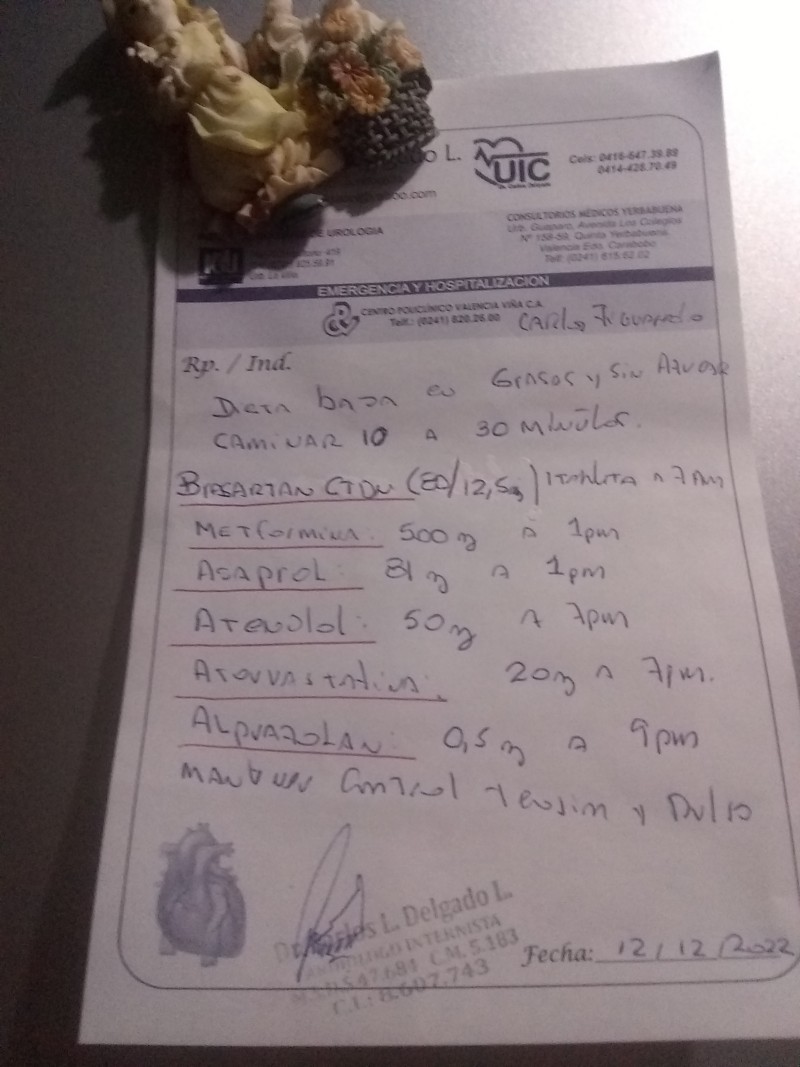 L.
UIC
Cels: 0416-647.39.89
0414-428.70.49
.com
DE UROLOGIA
CONSULTORIOS MÉDICOS YERBABUENA
Urb. Guaparo, Avenida Los Colegios
Nº 158-59, Quinta Yerbabuena,
Valencia Edo. Carabobo
Telf: (0241) 615.62.02
EMERGENCIA Y HOSPITALIZACION
CENTRO POLICLÍNICO VALENCIA VIÑA C.A.
Telf.: (0241) 820.26.00
CARlos FiGUEREDo
Rp. / Ind.
Dieta baja en Grasas y Sin Azucar
CAMiNAR 10 A 30 Minutos.
BiPSARTAN CTDN (80/12,5mg) 1 TABletA A 7 AM
METformina: 500 mg A 1pm
ASAprol: 81 mg A 1pm
ATENolol: 50 mg A 7pm
ATorvAStatina: 20 mg A 7pm.
AlprAZOLAN: 0,5 mg A 9pm
Control Tension y Pulso
Dr. Carlos L. Delgado L.
CARDIOLOGO INTERNISTA
M.S.D.S 47.684 C.M. 5.183
C.I.: 8.607.743
Fecha: 12/12/2022